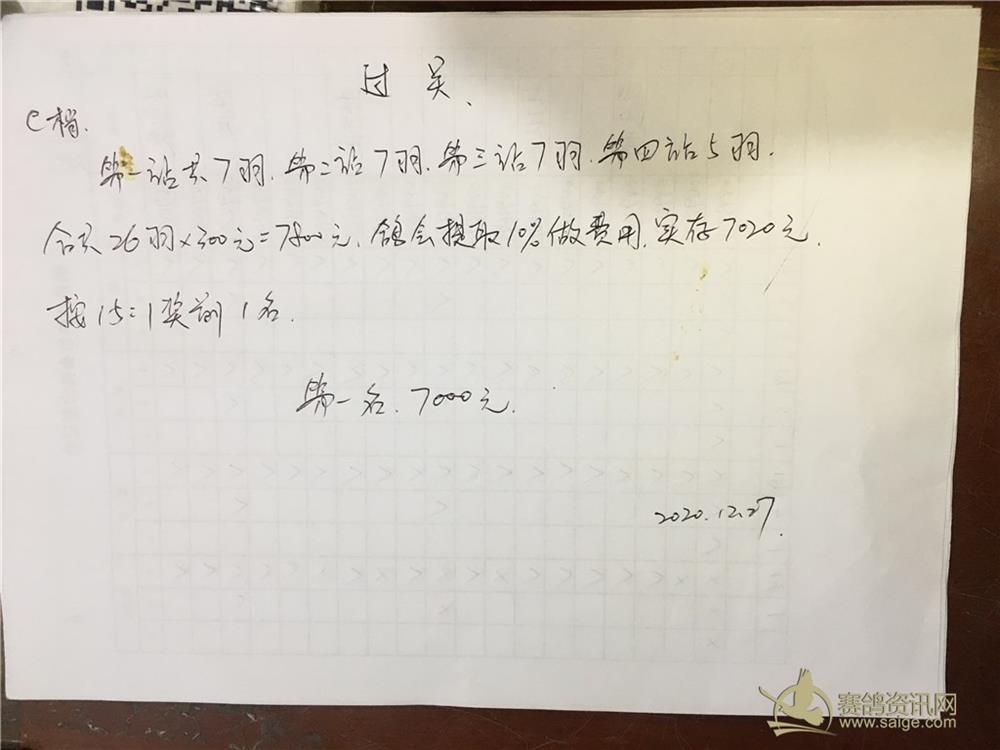 过关、
C档.
第一站共7羽.第二站7羽.第三站7羽.第四站5羽.
合共26羽×300元=7800元.鸽会提取10%做费用.实存7020元.
按15:1奖前1名.
第一名.7000元.
2020.12.27.
赛鸽资讯网
www.saige.com